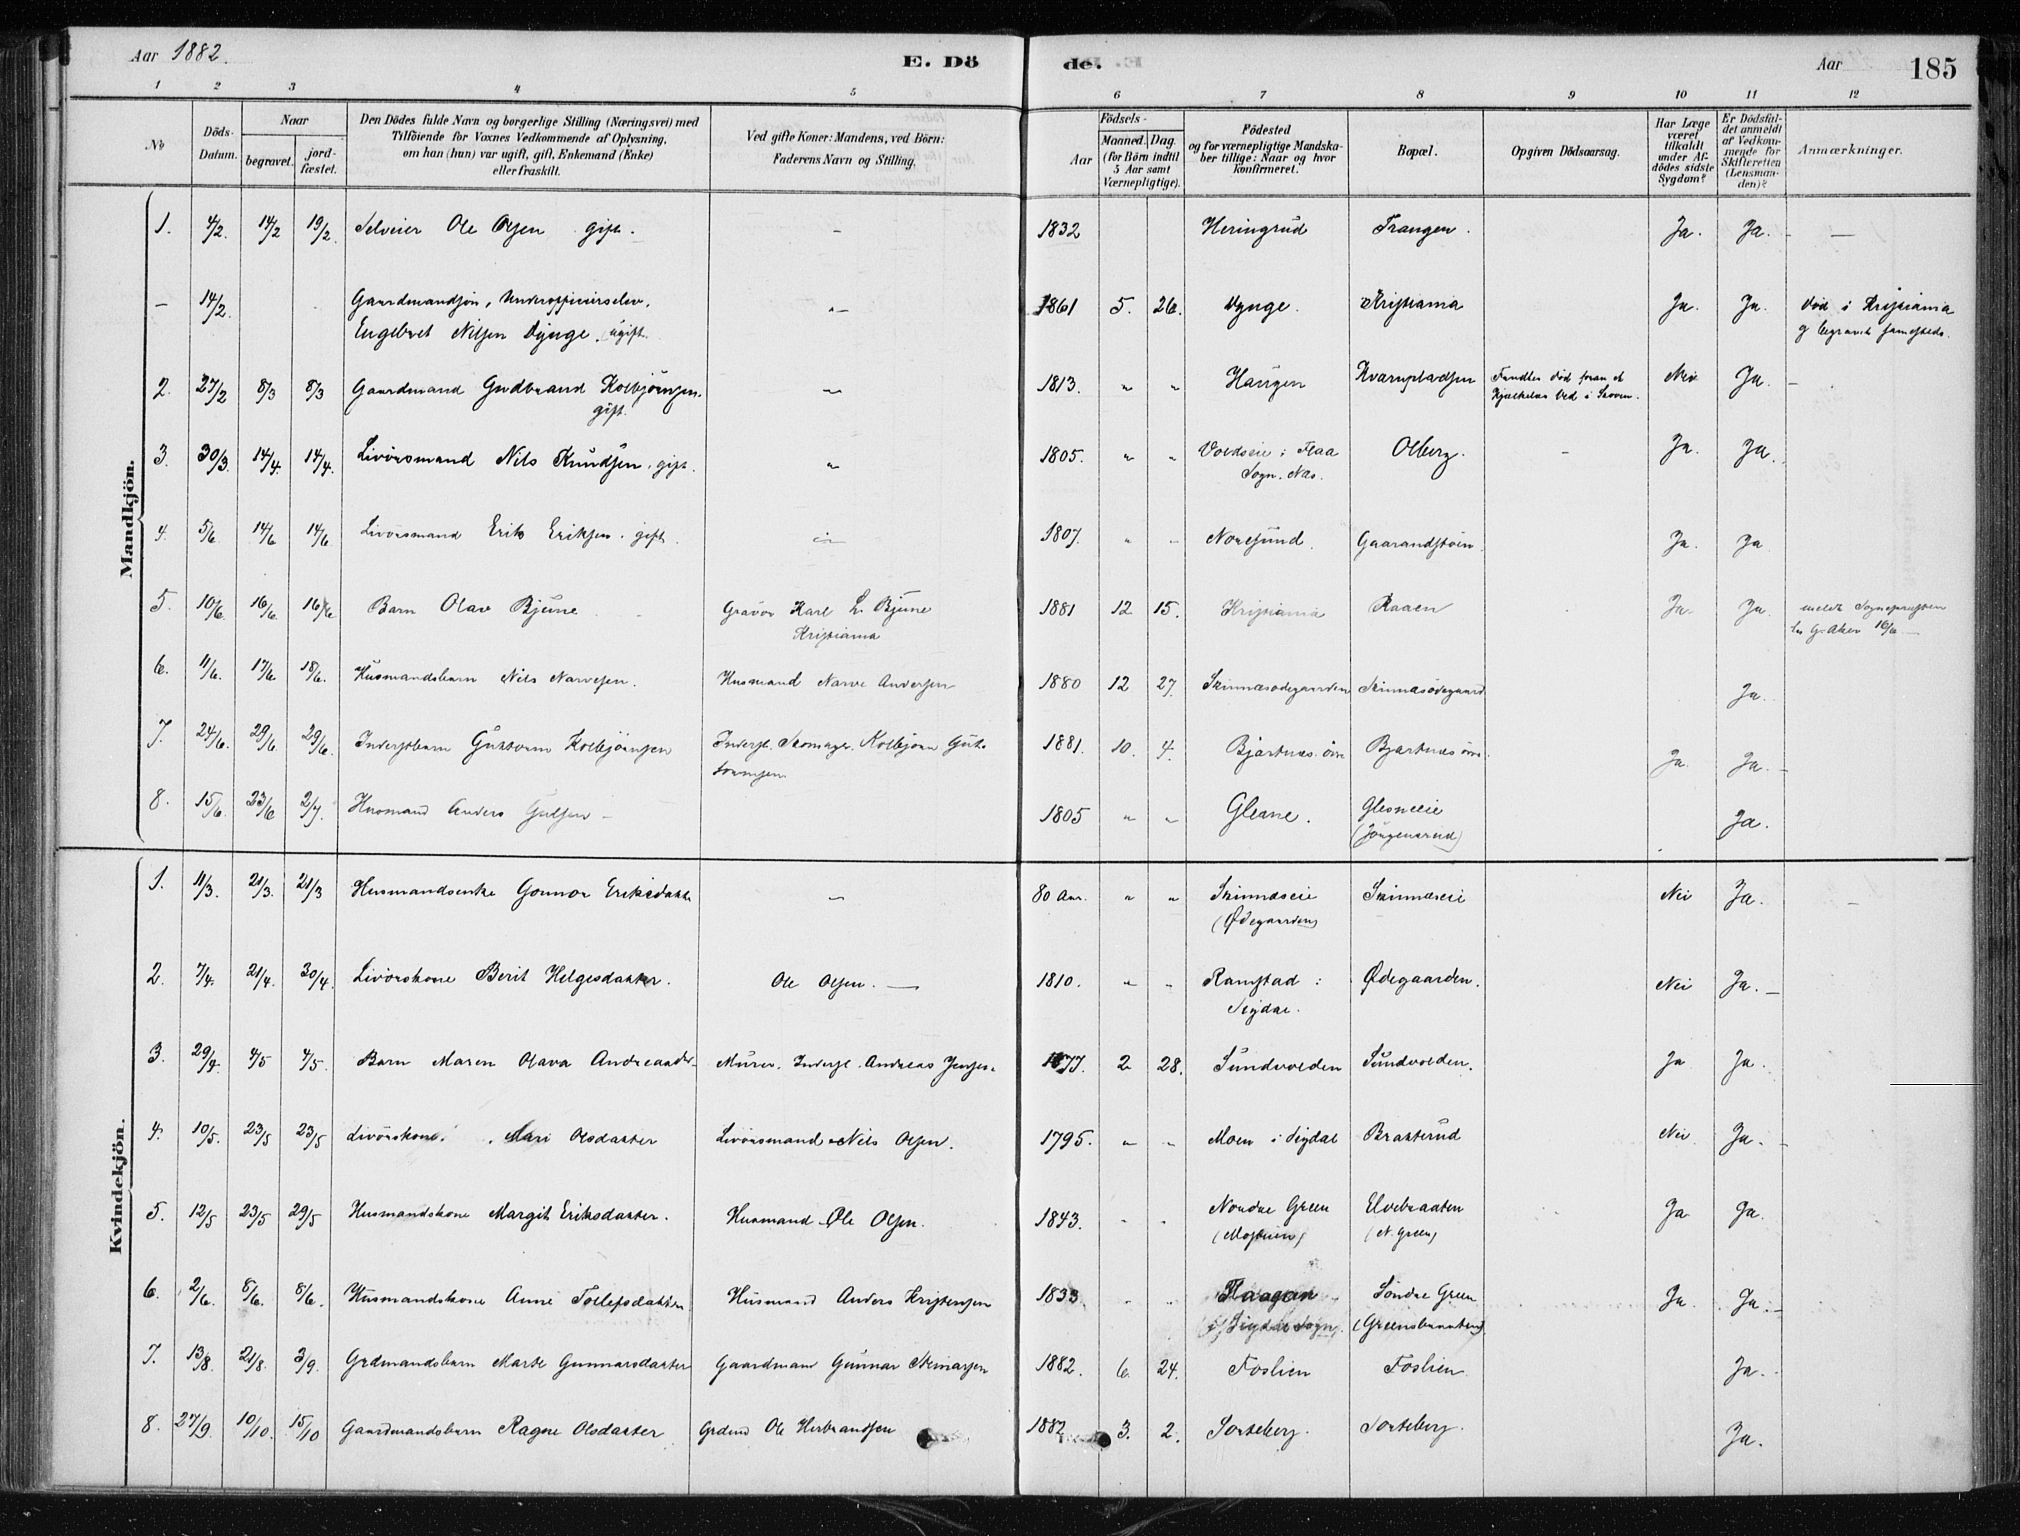 Aar 1882.
E. Dö
de.
Aar
185
1 2 3 4 5 6 7 8 9 10 11 12
No
Döds-
Datum.
Naar
begravet.
jord-
fæstet.
Den Dödes fulde Navn og borgerlige Stilling (Næringsvei) med
Tilföiende for Voxnes Vedkommende af Oplysning,
om han (hun) var ugift, gift, Enkemand (Enke)
eller fraskilt.
Ved gifte Koner: Mandens, ved Börn:
Faderens Navn og Stilling.
Födsels-
Aar
Maaned. Dag.
(for Börn indtil
5 Aar samt
Værnepligtige).
Födested
og for værnepligtige Mandska-
ber tillige: Naar og hvor
konfirmeret.
Bopæl.
Opgiven Dödsaarsag.
Har Læge
været
tilkaldt
under Af-
dödes sidste
Sygdom?
Er Dödsfal-
det anmeldt
af Vedkom-
mende for
Skifteretten
(Lensman-
den)?
Anmærkninger.
Mandkjön.
1. 4/2. 14/2 19/2. Selveier Ole Olsen gift. — 1832 Heringrud Trangen. Ja. Ja. — —
— 14/2. Gaardmandsön, Underofficierselev, 1861 5. 26. Dynge. Kristiania Ja. Ja. död i Kristiania
Engebret Nilsen Dynge. (ugift. og begravet samesteds.
2. 27/2 8/3 8/3 Gaardmand Gudbrand Kolbjörnsen. 1813. " " Haugen Kvarnpladsen Fundten död foran et Nei Ja. —
gift. Kjælkelas Ved i Skoven.
3. 30/3. 14/4. 14/4. Livörsmand Nils Knudsen. gift. " 1805. " " Voldseie i Flaa Olberg. Ja. Ja.
Sogn. Næs.
4. 5/6. 14/6 14/6. Livörsmand Erik Eriksen. gift. 1807. " " Noresund. Gaarandstöen. Ja. Ja
5. 10/6. 16/6. 16/6 Barn Olav Bjune Gravör Karl L. Bjune 1881 12 15. Kristiania Raaen Ja. Ja. meldt Sognepresten
Kristiania 16/6 —
6. 11/6. 17/6. 18/6. Husmandsbarn Nils Narvesen. Husmand Narve Andersen 1880 12 27. Skinnæsödegaarden Skinnæsödegaard Ja.
7. 24/6. 29/6 29/6. Inderstbarn Gustvam Kolbjörnsen Inderst. Skomager. Kolbjörn Gust- 1881. 10. 4. Bjærtnæs. övre Bjærtnæs övre. Ja. Ja. —
8. 15/6. 23/6 2/7. Husmand Anders Gulsen — 1805 " " Glesne. Glesneeie Ja.
(Jörgensrud)
Kvindekjön.
1. 11/3. 21/3. 21/3 Husmandsenke Gonnor Eriksdatter — 80 Aar. " " Skinnæseie Skinnæseie Nei Ja. —
(Ödegaarden)
2. 7/4. 21/4. 30/4. Livörskone Berit Helgesdatter. Ole Olsen. — 1810. " " Ramstad i Ødegaarden. Nei Ja. —
Sigdal.
3. 29/4. 4/5 4/5. Barn Maren Olava Andreasdtr. Murer. Inderst. Andreas Jensen. 1877. 2 28. Sundvolden Sundvolden. Ja Ja.
4. 10/5. 23/5 23/5 Livörskone. Mari Olsdatter Livörsmand Nils Olsen. 1795. " " Moen i Sigdal Braaterud Nei Ja. —
5. 12/5 23/5 29/5 Husmandskone Margit Eriksdatter. Husmand Ole Olsen. 1843. " " Nordre Green Elvebraaten Ja Ja.
(N. Green)
6. 2/6. 8/6. 8/6. Husmandskone Anne Tollefsdatter Husmand Anders Kristensen 1833. " " Söndre Green Ja. Ja. —
i Sigdal Sogn. (Greensbraaten)
7. 13/8. 21/8. 3/9. Grdmandsbarn Marte Gunnarsdatter Gaardmand Gunnar Steinarsen 1882. 6. 24. Foslien Foslien Ja.
8. 27/9. 10/10. 15/10 Gaardmandsbarn Ragne Olsdatter Grdmd Ole Herbrandsen 1882 3. 2. Sorteberg. Sorteberg. Ja.